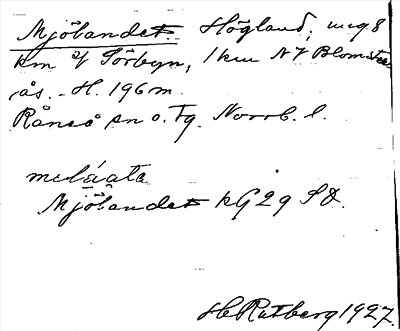 Mjölandet. Högland, meg 8
km V Sörbyn, 1 km NV Blomster
ås. - H. 196 m.
Råneå sn o. Tg. Norrb. l.
meláata
Mjölandet kG 29 SO.
HC Rutberg 1927.